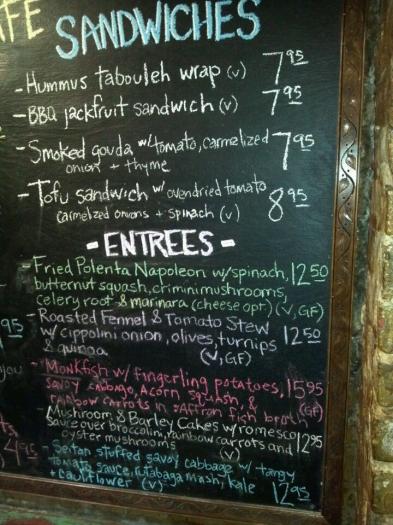 FE
SANDWICHES
-Hummus tabouleh wrap (v) 7 95
-BBQ jackfruit sandwich (v) 7 95
-Smoked gouda w/ tomato, carmelized 7 95
onion + thyme
-Tofu sandwich w/ ovendried tomato 8 95
carmelzed onions + spinach (v)
-ENTREES-
-Fried Polenta Napoleon w/spinach, 12 50
butternut squash, crimini mushrooms,
celery root & marinara (cheese opt.) (V, GF)
-Roasted Fennel & Tomato Stew
w/ cippolini onion, olives, turnips 12 50
& quinoa (V, GF)
-Monkfish w/ fingerling potatoes, 15 95
savoy cabbage, Acorn squash, &
rainbow carrots in saffron fish broth (GF)
-Mushroom & Barley Cakes w/ romesco
sauce over broccolini, rainbow carrots and 12 95
oyster mushrooms (v)
-Seitan stuffed savoy cabbage w/ tangy
tomato sauce, rutabaga mash, kale
+ cauliflower (v) 12 95
95
you
ts
4 95